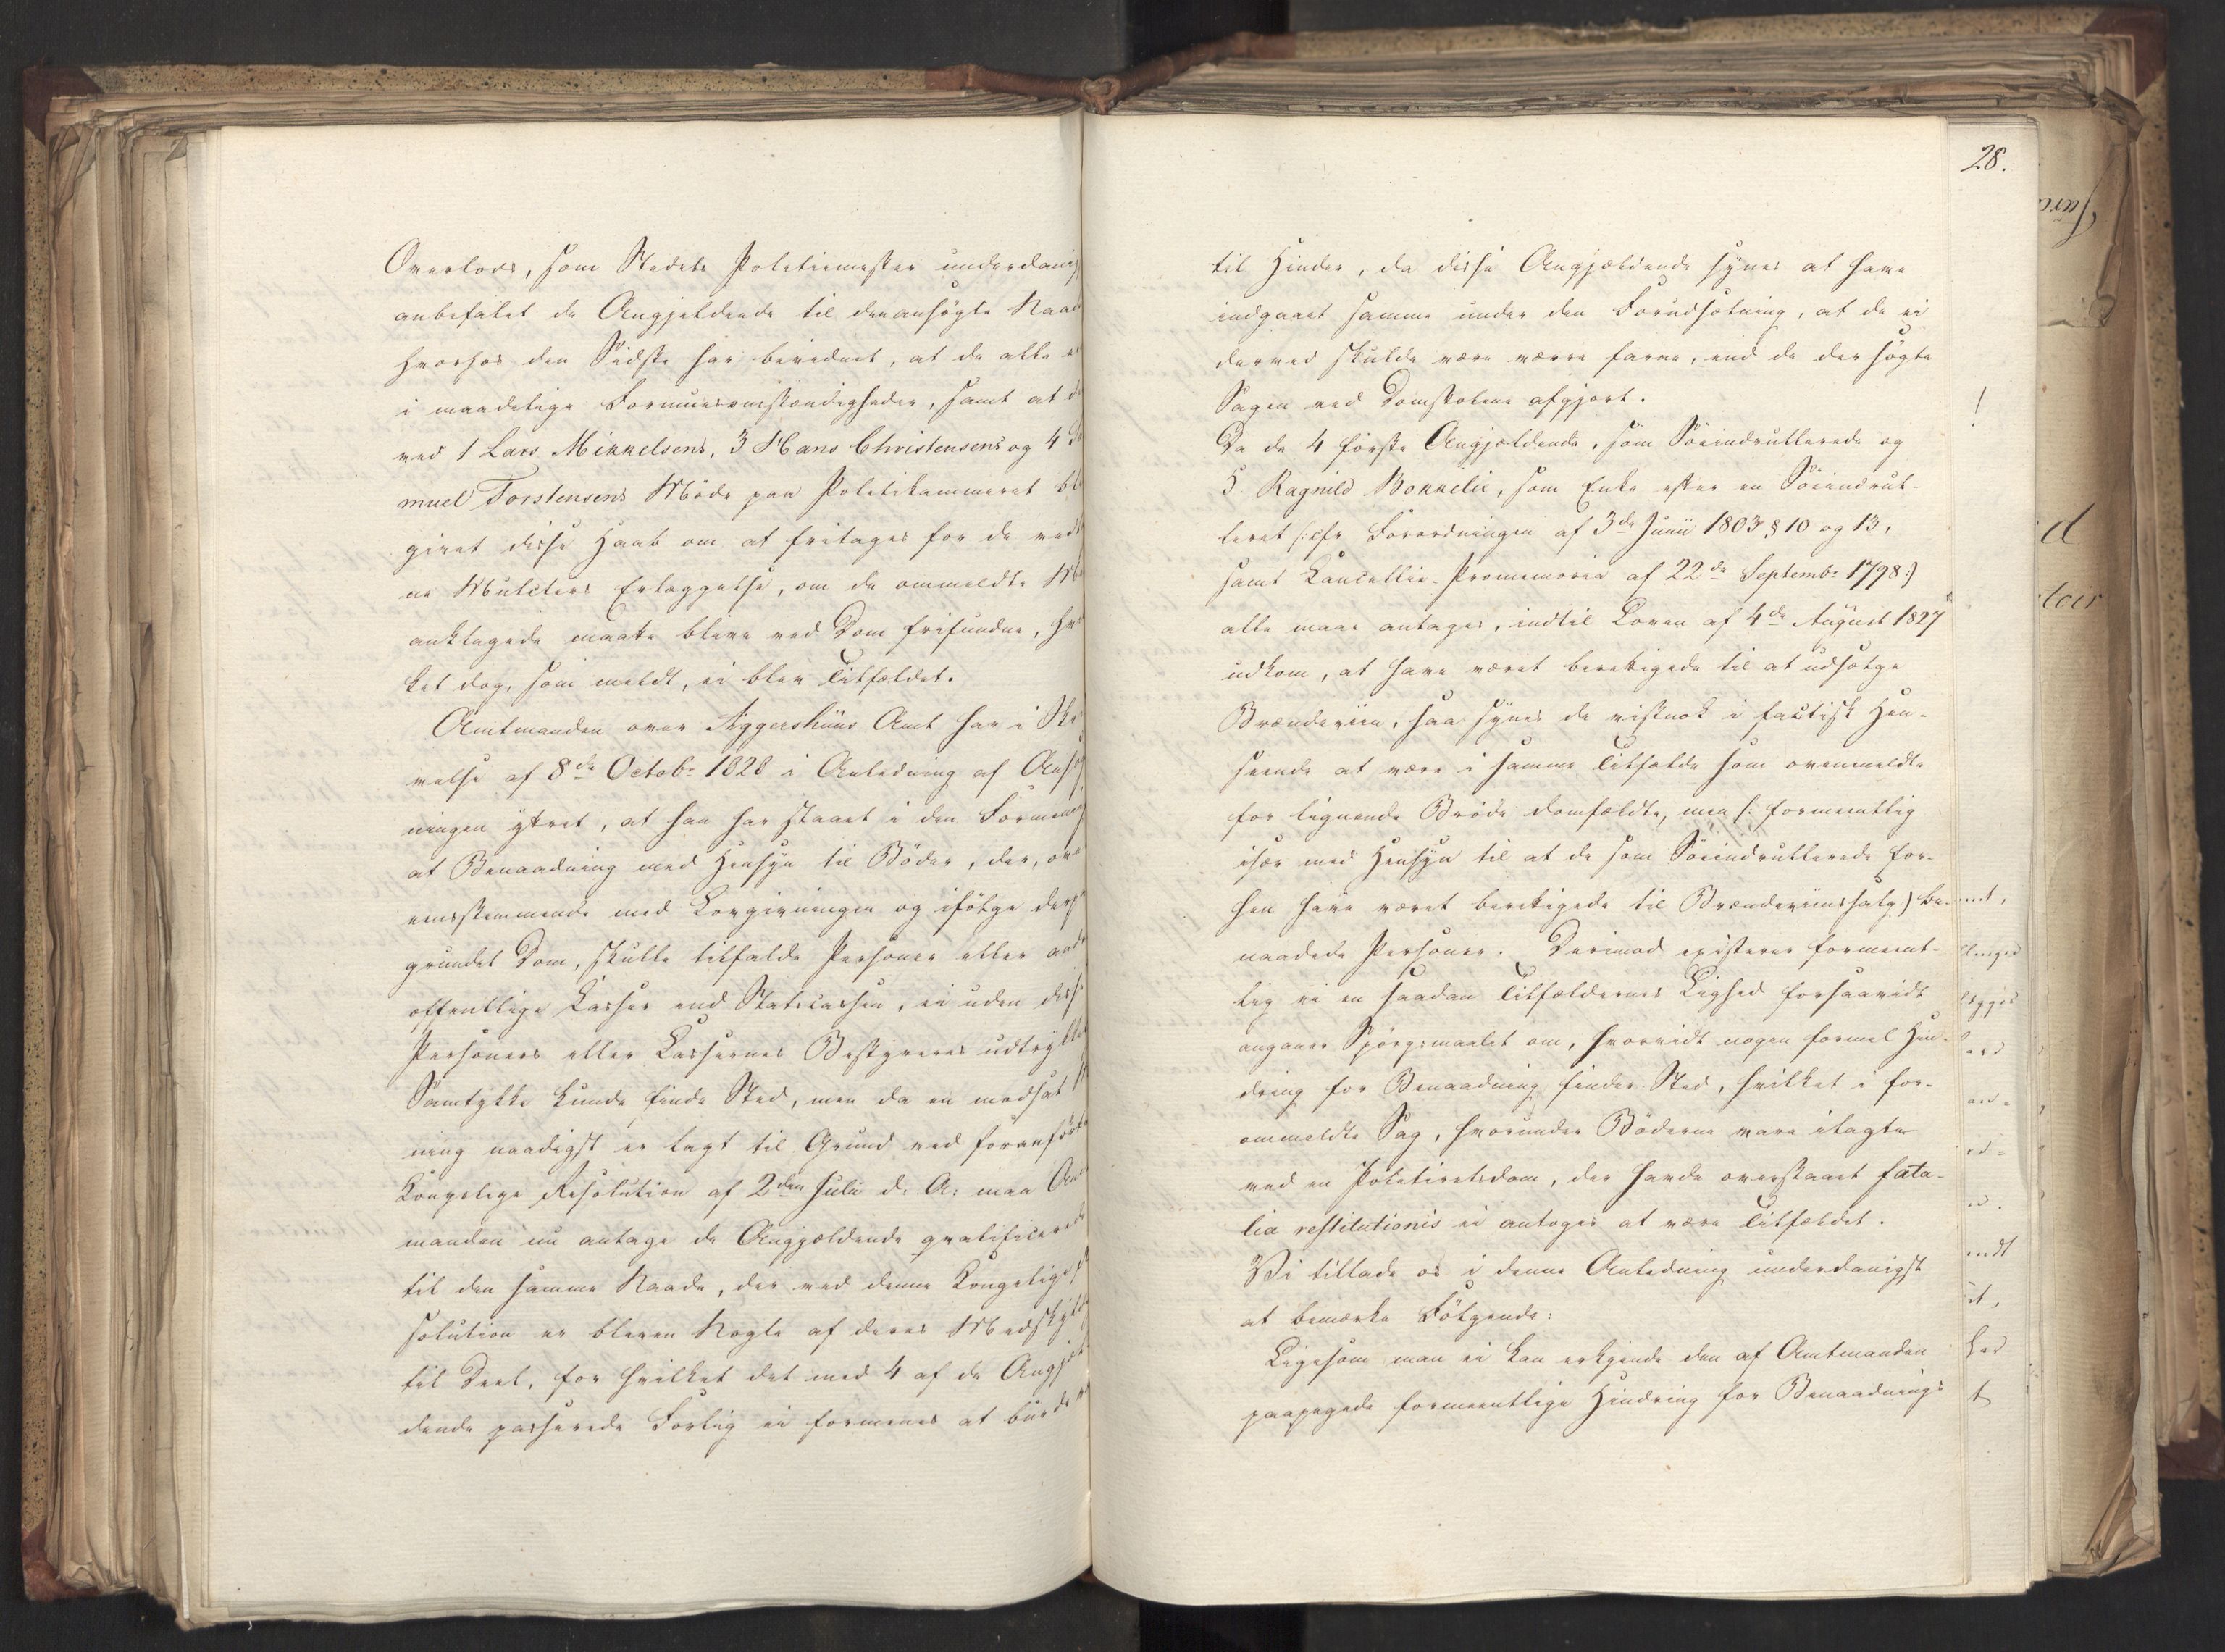 Overlods, som Stedets Politiemester underdanig
anbefalet de Angjeldende til den ansøgte Naad
hvorhos den Sidste har bevidnet, at de alle er
i maadelige Formuesomstændigheder, samt at d
ved 1 Lars Mikkelsens, 3 Hans Christensens og 4 S
muel Torstensens Møde paa Politikammeret bl
givet disse Haab om at fritages for de ved
ne Mulcters Erlæggelse, om de ommeldte M
anklagede maatte blive ved Dom frifundne, hv
ket dog, som meldt, ei blev Tilfældet.
Amtmanden over Aggershuus Amt har i Skr
velse af 8de Octobr 1828 i Anledning af Ansø
ningen yttret, at han har staaet i den Formeni
at Benaadning med Hensyn til Bøder, der, ove
eensstemmende med Lovgivningen og ifølge derpa
grundet Dom, skulle tilfalde Personer eller and
offentlige Casser end Statscassen, ei uden diss
Personers eller Cassernes Bestyreres udtrykke
Samtykke kunde finde Sted, men da en modsat
ning naadigst er lagt til Grund ved foranførte
Kongelige Resolution af 2den Julii d: A: maa Am
manden nu antage de Angjældende qvalificered
til den samme Naade, der ved denne Kongelige
solution er bleven Nogle af deres Medskyld
til Deel, for hvilket det med 4 af de Angjæl
dende passerede Forlig ei formenes at burde
28.
til Hinder, da disse Angjældende synes at have
indgaaet samme under den Forudsætning, at de ei
derved skulde være værre farne, end de der søgte
Sagen ved Domstolene afgjort.
Da de 4 første Angjældende, som Søeindrullerede og
5. Ragnild Bokkelie, som Enke efter en Søeindrul-
leret /: cfr Forordningen af 3de Junii 1803 § 10 og 13,
samt Cancellie-Promemoria af 22de Septembr 1798:/
alle maae antages, indtil Loven af 4de August 1827
udkom, at have været berettigede til at udsælge
Brændeviin, saa synes de vistnok i factisk Hen-
seende at være i samme Tilfælde som ovenmeldte
for lignende Brøde domfældte, men /: formeentlig
især med Hensyn til at de som Søeindrullerede for-
hen have været berettigede til Brændeviinssalg) be-
naadede Personer. Derimod existerer formeent-
lig ei en saadan Tilfældernes Lighed forsaavidt
angaaer Spørgsmaalet om, hvorvidt nogen formel Hin-
dring for Benaadning finder Sted, hvilket i for-
ommeldte Sag, hvorunder Bøderne vare ilagte
ved en Politieretsdom, der havde overstaaet fata-
lia restitutionis ei antoges at være Tilfældet.
Vi tillade os i denne Anledning underdanigst
at bemærke Følgende:
Ligesom man ei kan erkjende den af Amtmanden
paapegede formeentlige Hindring for Benaadnings